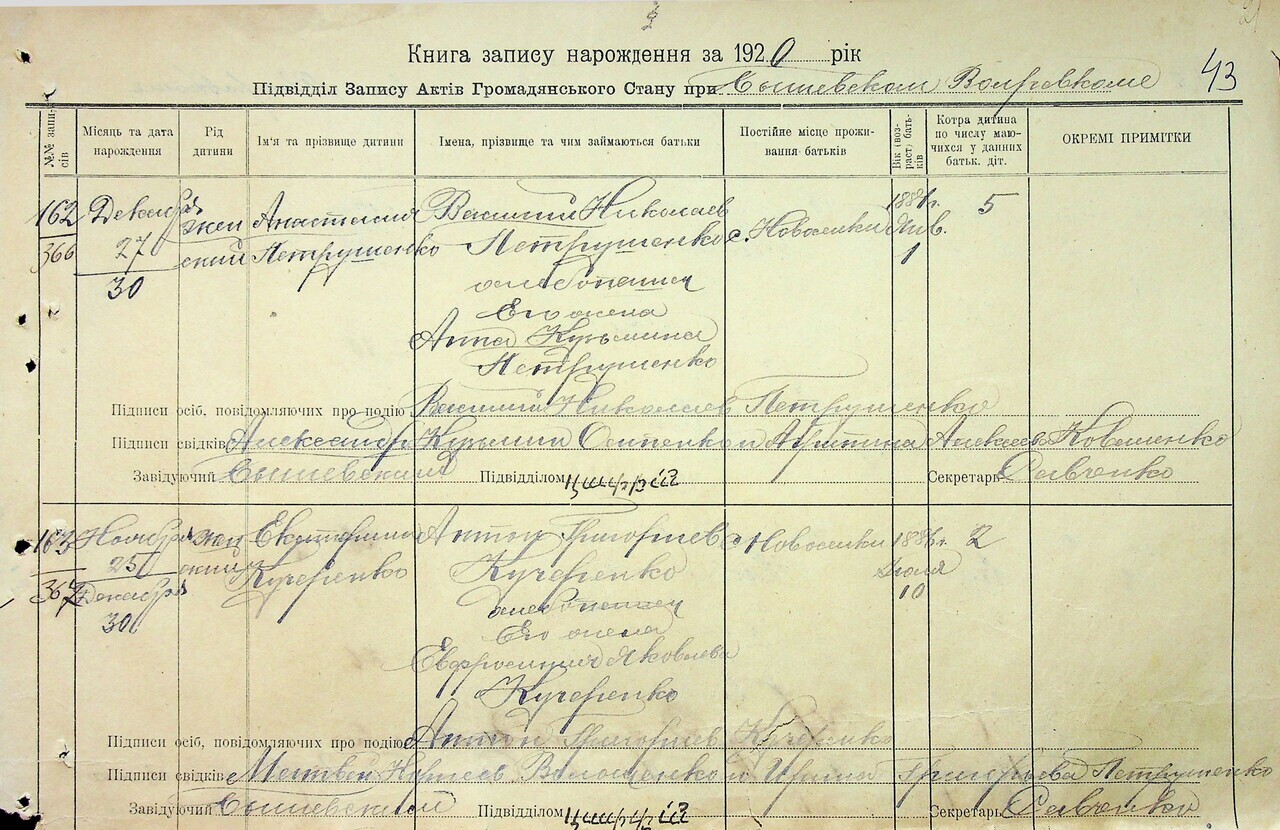 Книга запису нарождення за 1920 рік
43
Підвідділ Запису Актів Громадянського Стану при
№№ запи-
сів
Місяць та дата
нарождення
Рід
дитини
Ім'я та прізвище дитини
Имена, прізвище та чим займаються батьки
Постійне місце прожи-
вання батьків
Вік (воз-
раст) бать-
ків
Котра дитина
по числу маю-
чихся у данных
батьк. діт.
ОКРЕМІ ПРИМІТКИ
162
366
Декабря
27
30
жен
ский
Анастасия
Петрушенко
Василий Николаев
Петрушенко
хлебопашец
Его жена
Анна Кузьмина
Петрушенко
с. Новоселки
Янв.
1
5
Підписи осіб, повідомляючих про подію Василий Николаев Петрушенко
Підписи свідків Александр Кузьмин Осипенко и Агрипина Алексеева Коваленко
Завідуючий Сышевский Підвідділом Секретарь Савченко
163
367
Ноября
25
Декабря
30
жен
ский
Екатерина
Кучеренко
Антон Григориев
Кучеренко
хлебопашец
Его жена
Евфросиния Яковлева
Кучеренко
с Новоселки
Июля
10
2
Підписи осіб, повідомляючих про подію Антон Григориев Кучеренко
Підписи свідків Матвей Корнеев Волошенко и Ирина Григорьева Петрушенко
Завідуючий Сышевский Підвідділом Секретарь Савченко